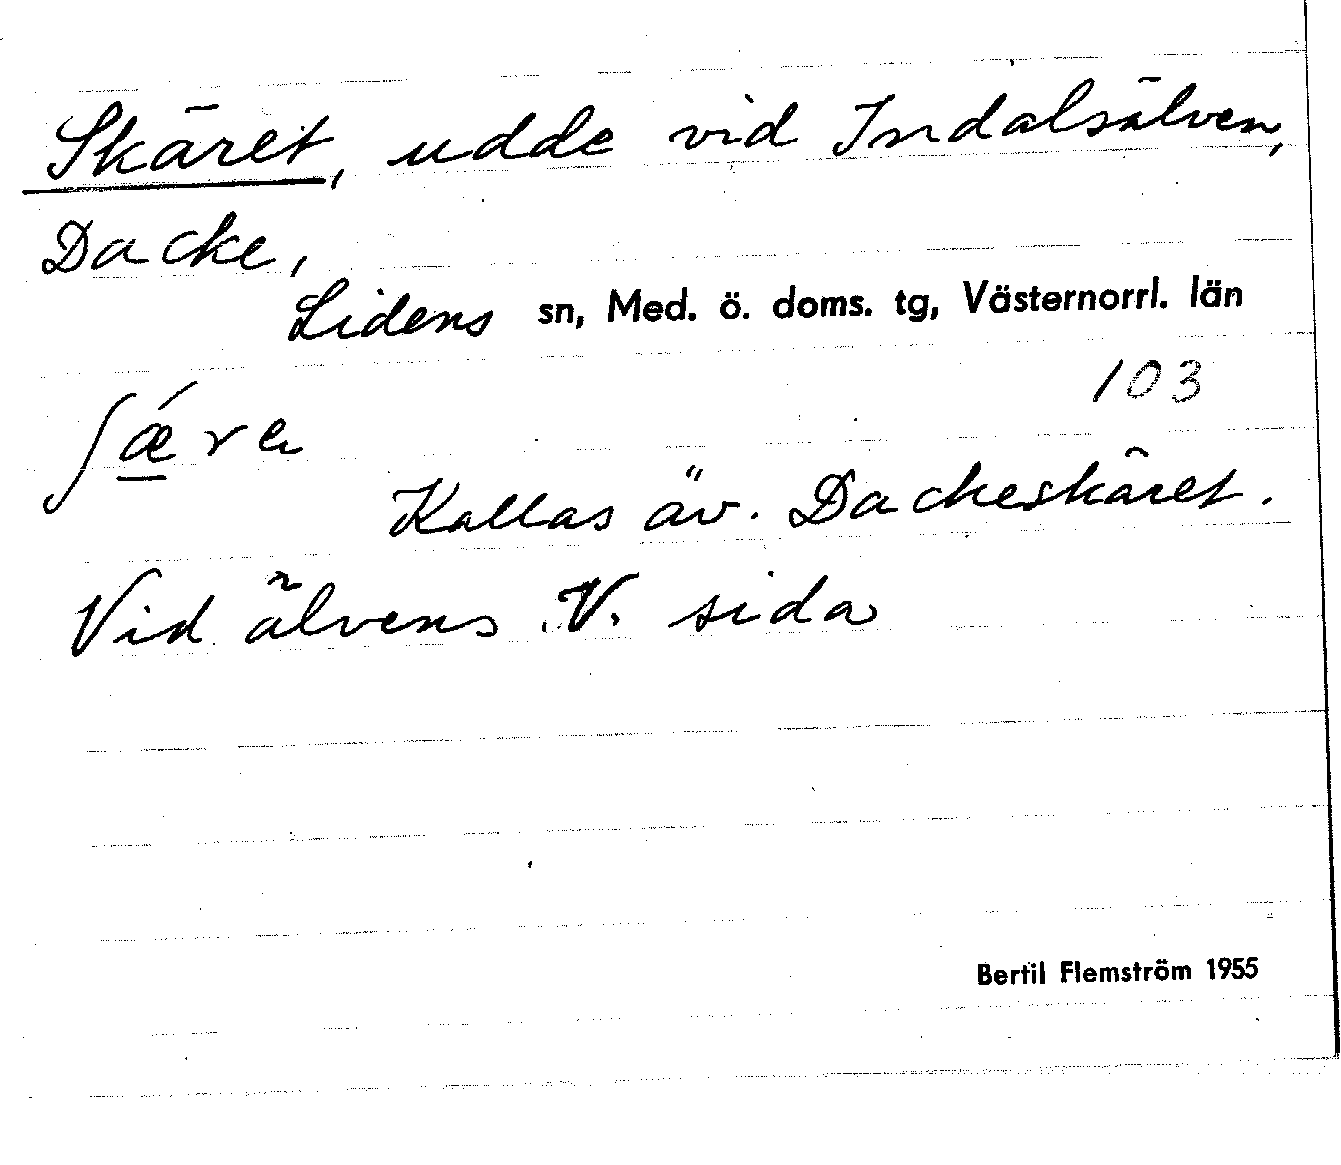 Skäret, udde vid Indalsälven,
Dacke,
Lidens sn, Med. ö. doms. tg, Västernorrl. län
103
ʃǽra
Kallas äv. Dackeskäret.
Vid älvens V. sida
Bertil Flemström 1955